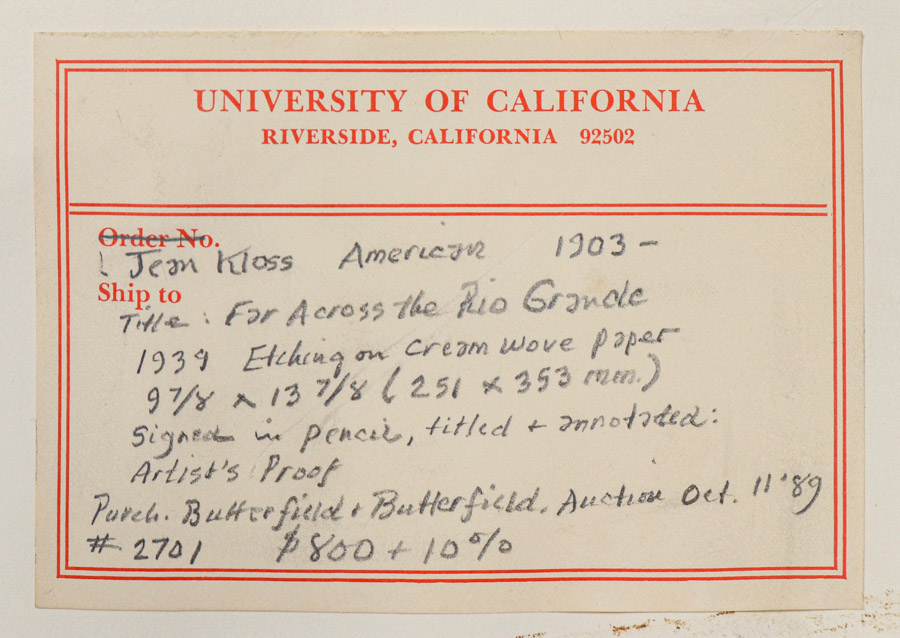 UNIVERSITY OF CALIFORNIA
RIVERSIDE, CALIFORNIA 92502
Order No.
Jean Kloss American 1903-
Ship to
Title: Far Across the Rio Grande
1939 Etching on cream wove paper
9 7/8 x 13 7/8 (251 x 353 mm.)
Signed in pencil, titled + annotated:
Artist's Proof
Purch. Butterfield + Butterfield, Auction Oct. 11 '89
# 2701 $800 + 10%